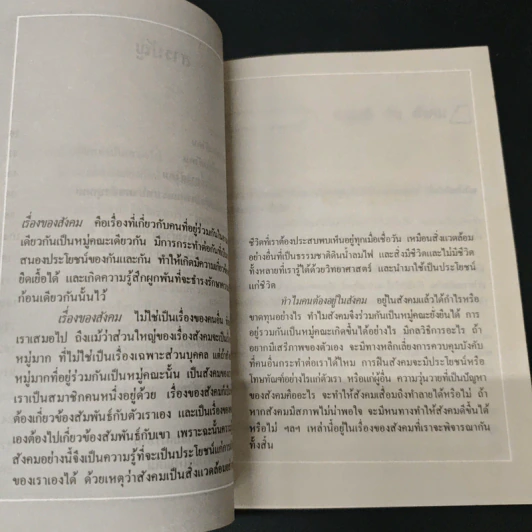 เรื่องของสังคม คือเรื่องที่เกี่ยวกับคนที่อยู่ร่วมกันใน
เดียวกันเป็นหมู่คณะเดียวกัน มีการกระทำต่อกันที่เป็น
สนองประโยชน์ของกันและกัน ทำให้เกิดมีความ
ยึดเยื้อได้ และเกิดความรู้สึกผูกพันที่จะธำรงรักษา
ก้อนเดียวกันนั้นไว้
เรื่องของสังคม ไม่ใช่เป็นเรื่องของคนอื่น
เราเสมอไป ถึงแม้ว่าส่วนใหญ่ของเรื่องสังคมจะเป็น
หมู่มาก ที่ไม่ใช่เป็นเรื่องเฉพาะส่วนบุคคล แต่ถ้า
หมู่มากที่อยู่ร่วมกันเป็นหมู่คณะนั้น เป็นสังคม
เราเป็นสมาชิกคนหนึ่งอยู่ด้วย เรื่องของสังคมก็
ต้องเกี่ยวข้องสัมพันธ์กับตัวเราเอง และเป็นเรื่อง
เองต้องไปเกี่ยวข้องสัมพันธ์กับเขา เพราะฉะนั้นความ
สังคมอย่างนี้จึงเป็นความรู้ที่จะเป็นประโยชน์แก่การ
ของเราเองได้ ด้วยเหตุว่าสังคมเป็นสิ่งแวดล้อม
ชีวิตที่เราต้องประสบพบเห็นอยู่ทุกเมื่อเชื่อวัน เหมือนสิ่งแวดล้อม
อย่างอื่นที่เป็นธรรมชาติดินน้ำลมไฟ และสิ่งมีชีวิตและไม่มีชีวิต
ทั้งหลายที่เรารู้ได้ด้วยวิทยาศาสตร์ และนำมาใช้เป็นประโยชน์
แก่ชีวิต
ทำไมคนต้องอยู่ในสังคม อยู่ในสังคมแล้วได้กำไรหรือ
ขาดทุนอย่างไร ทำไมสังคมจึงร่วมกันเป็นหมู่คณะยั่งยืนได้ การ
อยู่ร่วมกันเป็นหมู่คณะเกิดขึ้นได้อย่างไร มีกลวิธีการอะไร ถ้า
อยากมีเสรีภาพของตัวเอง จะมีทางหลีกเลี่ยงการควบคุมบังคับ
ที่คนอื่นกระทำต่อเราได้ไหม การฝืนสังคมจะมีประโยชน์หรือ
โทษทัณฑ์อย่างไรแก่ตัวเรา หรือแก่ผู้อื่น ความวุ่นวายที่เป็นปัญหา
ของสังคมคืออะไร จะทำให้สังคมเสื่อมถึงทำลายได้หรือไม่ ถ้า
หากสังคมมีสภาพไม่น่าพอใจ จะมีหนทางทำให้สังคมดีขึ้นได้
หรือไม่ ฯลฯ เหล่านี้อยู่ในเรื่องของสังคมที่เราจะพิจารณากัน
ทั้งสิ้น